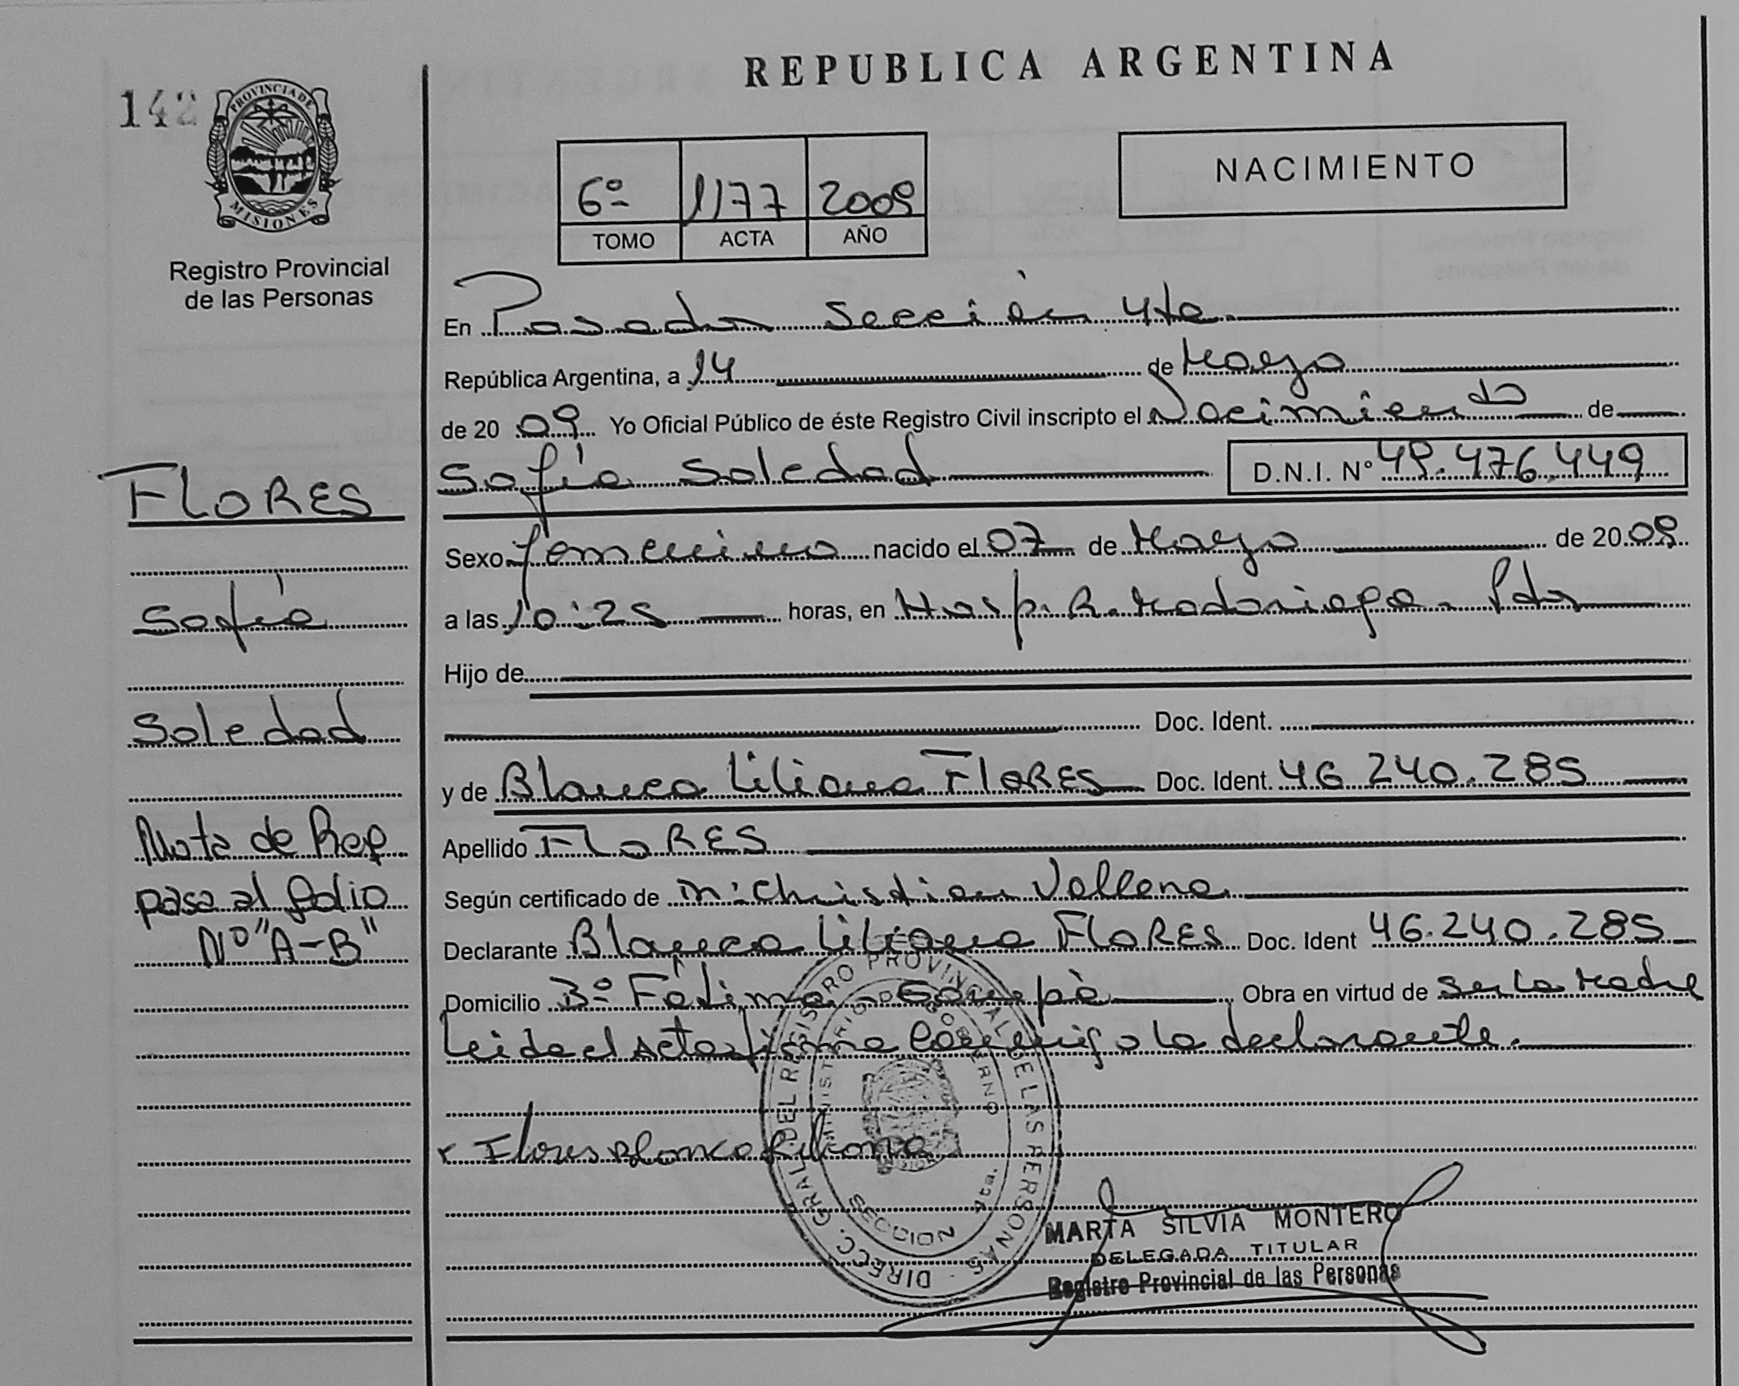 REPUBLICA ARGENTINA
142
PROVINCIA DE MISIONES
Registro Provincial
de las Personas
6º 1177 2009
TOMO ACTA AÑO
NACIMIENTO
En Posadas Sección 4ta.
República Argentina, a 14 de Mayo
de 2009 Yo Oficial Público de éste Registro Civil inscripto el Nacimiento de
Sofía Soledad D.N.I. Nº 49.476.449
Sexo femenino nacido el 07 de Mayo de 2009
a las 10:25 horas, en Hosp. R. Madariaga - Pdas
Hijo de
Doc. Ident.
y de Blanca Liliana FLORES Doc. Ident. 46.240.285
Apellido FLORES
Según certificado de Christian
Declarante Blanca Liliana FLORES Doc. Ident 46.240.285
Domicilio Bº Fátima - Garupá Obra en virtud de Ser La Madre
Leida el Acta firma Conmigo la declarante.
Flores Blanca Liliana
DIRECC. GRAL. DEL REGISTRO PROVINCIAL DE LAS PERSONAS
MINISTERIO DE GOBIERNO
SECCION 4ta.
MARTA SILVIA MONTERO
DELEGADA TITULAR
Registro Provincial de las Personas
FLORES
Sofía
Soledad
Nota de Rec
pasa al folio
Nº "A-B"